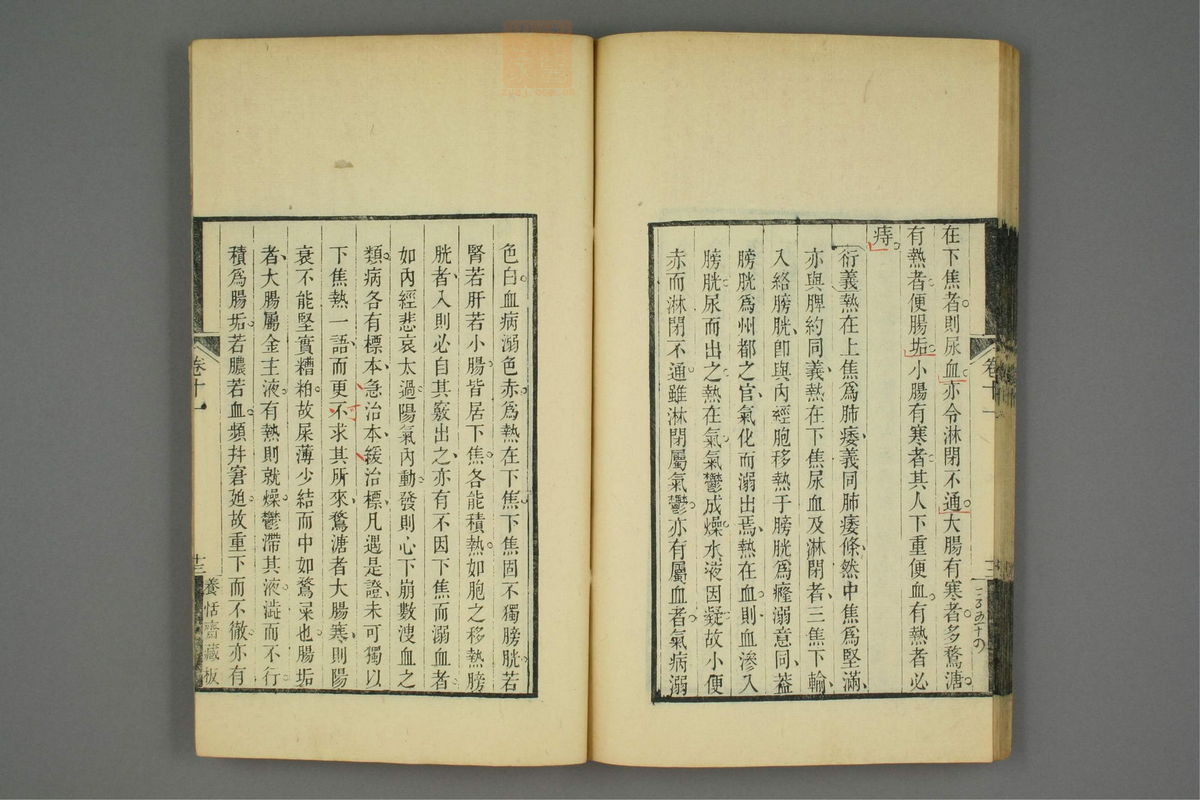 在下焦者則尿血亦令淋閉不通大腸有寒者多鶩溏
有熱者便腸垢小腸有寒者其人下重便血有熱者必
痔
衍義熱在上焦爲肺痿義同肺痿條然中焦爲堅滿
亦與脾約同義熱在下焦尿血及淋閉者三焦下輸
入絡膀胱卽與內經胞移熱于膀胱爲癃溺意同葢
膀胱爲州都之官氣化而溺出焉熱在血則血滲入
膀胱尿而出之熱在氣氣鬱成燥水液因凝故小便
赤而淋閉不通雖淋閉屬氣鬱亦有屬血者氣病溺
卷十一
色白血病溺色赤爲熱在下焦下焦固不獨膀胱若
腎若肝若小腸皆居下焦各能積熱如胞之移熱膀
胱者入則必自其竅出之亦有不因下焦而溺血者
如內經悲哀太過陽氣內動發則心下崩數溲血之
類病各有標本急治本緩治標凡遇是證未可獨以
下焦熱一語而更不求其所來鶩溏者大腸寒則陽
衰不能堅實糟粕故屎薄少結而中如鶩屎也腸垢
者大腸屬金主液有熱則就燥鬱滯其液澁而不行
積爲腸垢若膿若血頻幷窘廹故重下而不徹亦有
卷十一
十三
養恬齋藏板